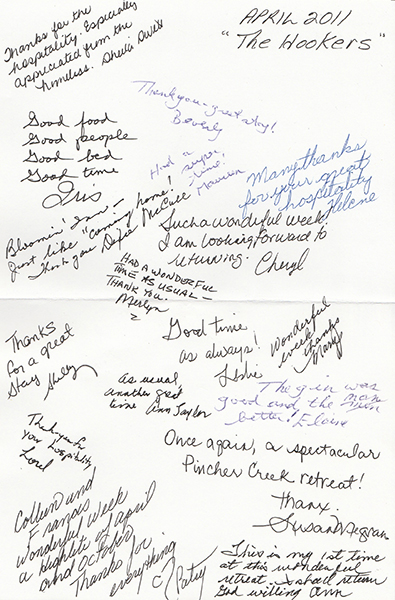 Thanks for the
hospitality. Especially
appreciated from the
homeless. Sheila
APRIL 2011
"The Hookers"
Thank you - great stay!
Beverly
Good food
Good people
Good bed
Good time
Iris
Had a
super
time!
Maureen
Many thanks
for your great
hospitality
Helene
Bloomin' Inn -
just like "coming home!
Thank you
Such a wonderful week
I am looking forward to
returning. Cheryl
HAD A WONDERFUL
TIME AS USUAL -
THANK YOU.
Merlyn
Thanks
for a great
stay
Good time
as always!
Wonderful
week
thanks
Mary
As usual
another good
time Ann Taylor
The gin was
good and the
better! Elaine
Thank you for
your hospitality
Once again, a spectacular
Pincher Creek retreat!
Thanx.
Susan
Colleen and
Francis
wonderful week
a highlite of April
and October
Thanks for
everything
Patsy
This is my 1st time
at this wonderful
retreat. I shall return
God willing Ann